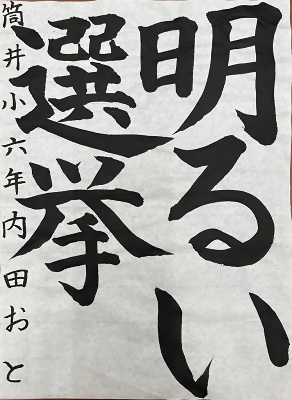 明るい
選挙
筒井小六年内田おと